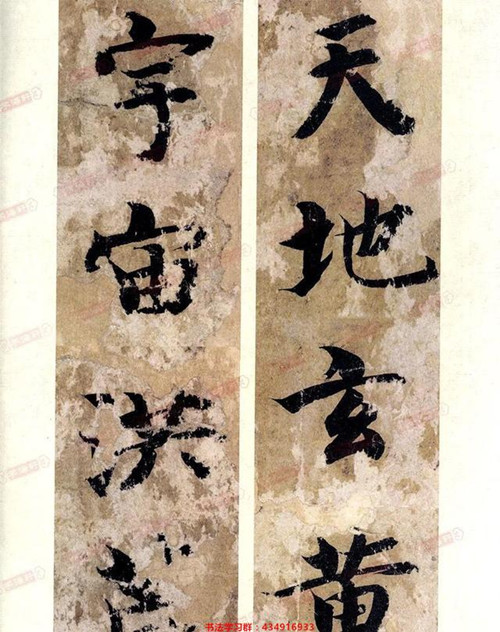 天地玄黄
宇宙洪荒
书法学习群：434916933